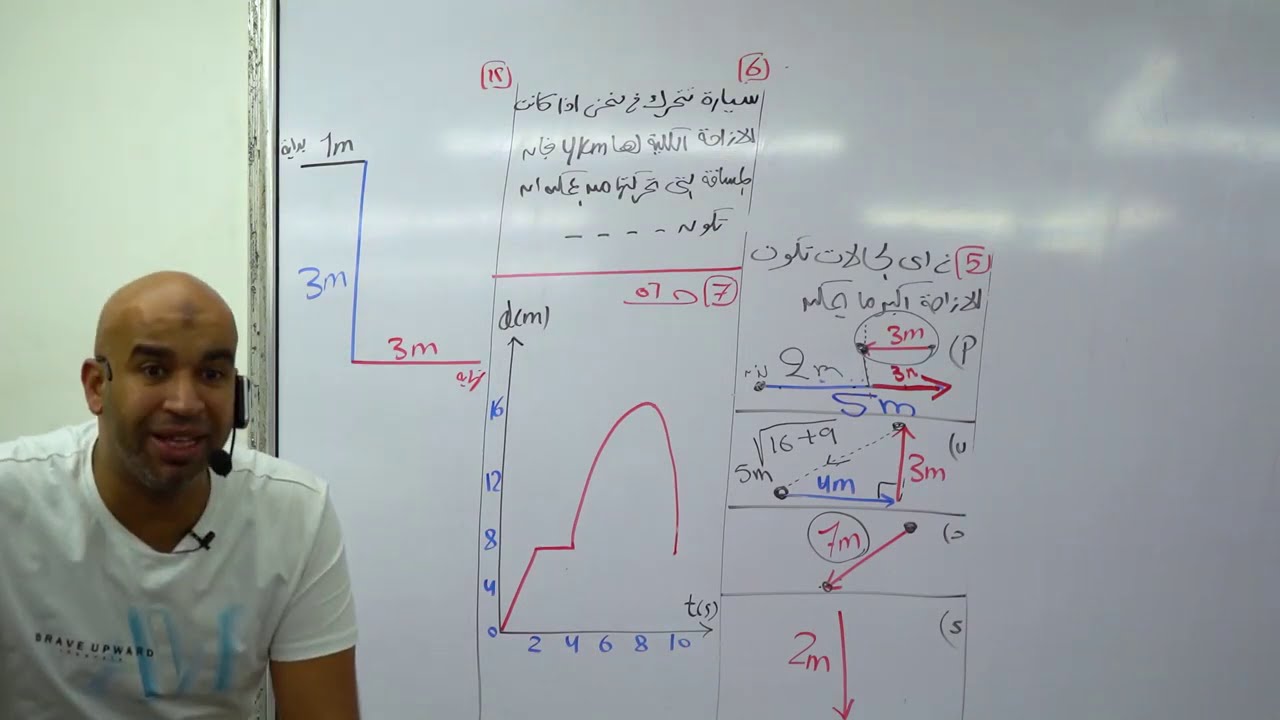 بداية
1m
3m
3m
12
6
سيارة تتحرك في منحنى اذا كانت
الازاحة الكلية لها 4km فإن
المسافة التى تحركتها من الممكن ان
تكون ----
7 ص 10
d(m)
16
12
8
4
0
2 4 6 8 10
t(s)
5 في اى الحالات تكون
الازاحة اكبر ما يمكن
أ)
3m
2m
3m
5m
ب)
√16+9
5m
4m
3m
ج)
7m
د)
2m
BRAVE UPWARD